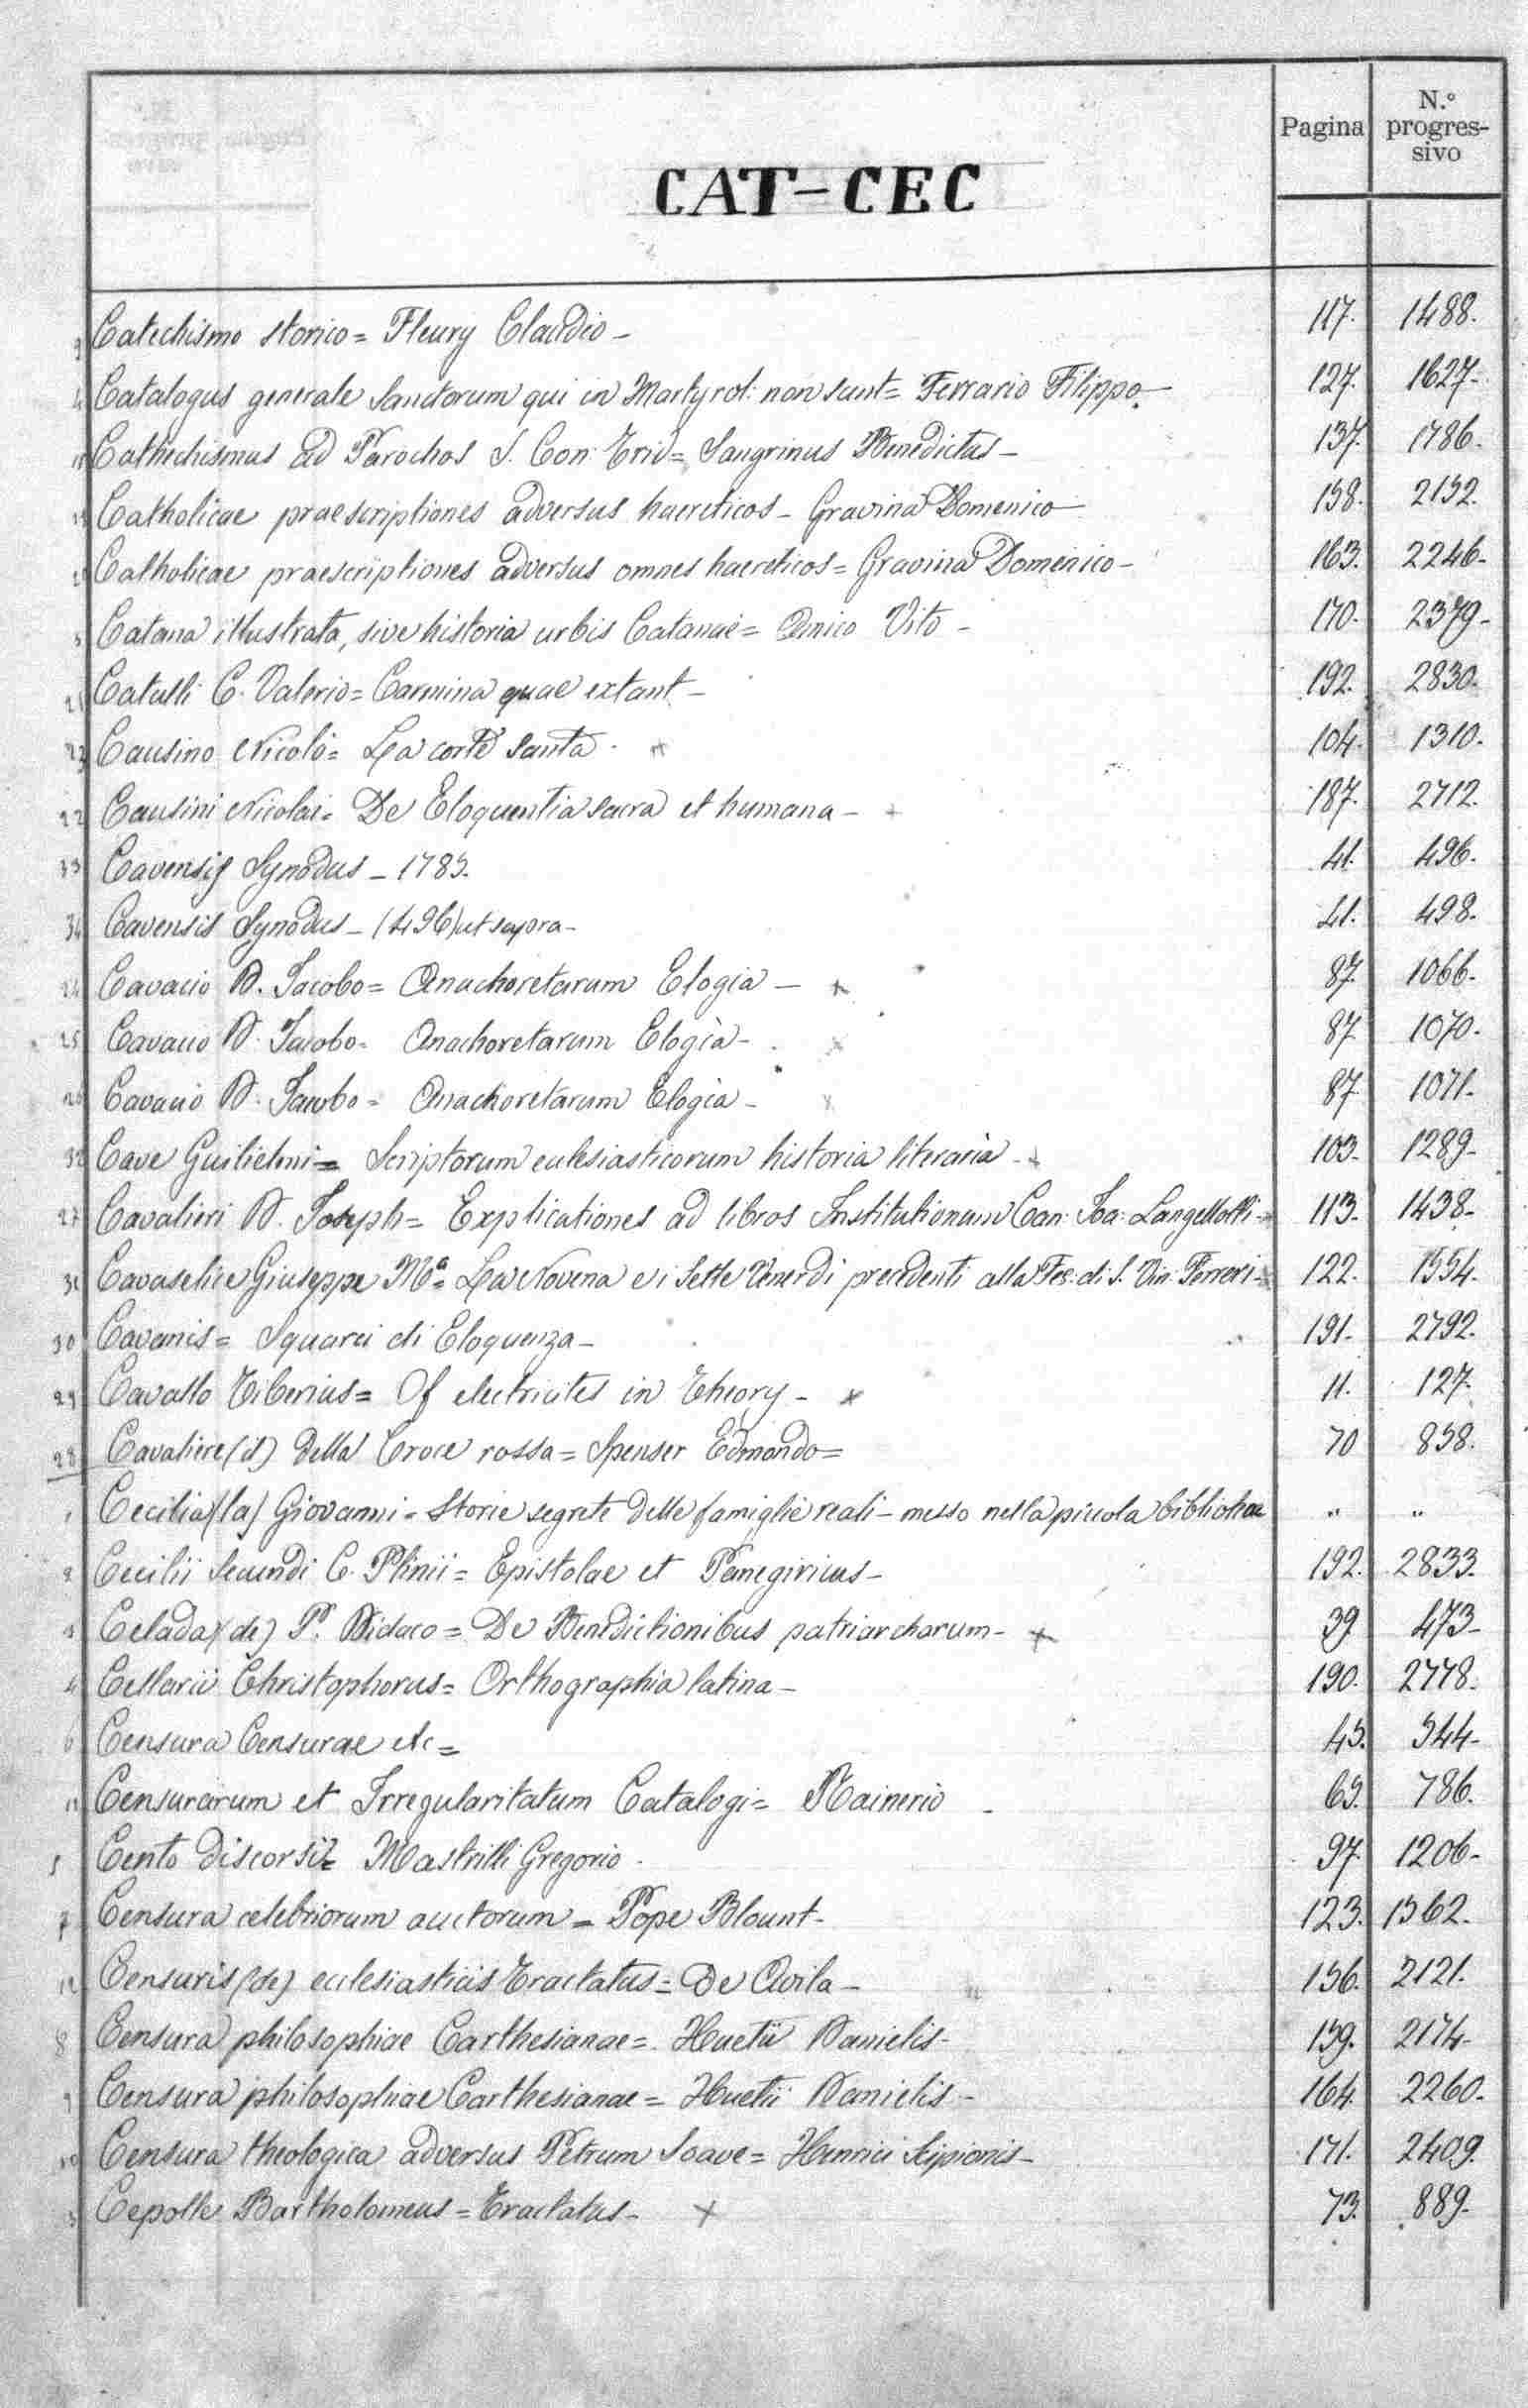 Pagina
N.º progres-
sivo
CAT-CEC
Catechismo storico = Fleury Claudio - 117. 1488.
Catalogus generale Sanctorum qui in Martyrol: non sunt = Ferrario Filippo - 127. 1627-
Cathechismus ad Parochos S. Con: Trid = Saugrinus Benedictus - 137. 1786.
14 Catholicae praescriptiones adversus haereticos - Gravina Domenico - 158. 2152.
Catholicae praescriptiones adversus omnes haereticos = Gravina Domenico - 163. 2246-
Catana illustrata, sive historia urbis Catanae = Amico Vito - 170. 2379-
21 Catulli C. Valerio = Carmina quae extant - 192. 2830.
23 Causino Nicolò = La corte santa - 104. 1310.
22 Causini Nicolai = De Eloquentia sacra et humana - + 187. 2712.
33 Cavensis Synodus - 1785. 41. 496.
34 Cavensis Synodus - (496) ut supra - 41. 498.
24 Cavacio D. Jacobo = Anachoretarum Elogia - 87. 1066.
25 Cavacio D. Jacobo = Anachoretarum Elogia - 87 1070.
26 Cavacio D. Jacobo = Anachoretarum Elogia - 87 1071.
32 Cave Guilielmi = Scriptorum ecclesiasticorum historia literaria - 103- 1289-
27 Cavalieri D. Joseph = Explicationes ad libros Institutionum Can: Joa: Langellotti - 113- 1438-
31 Cavaselice Giuseppe Mª = La Novena e i Sette Venerdì precedenti alla Fes: di S. Vin. Ferreri - 122. 1554.
30 Cavanis = Squarci di Eloquenza - 191- 2792.
29 Cavallo Tiberius = Of electricites in Theory - x 11. 127.
28 Cavaliere (il) della Croce rossa = Spenser Edmondo = 70 858.
1 Cecilia (la) Giovanni = Storie segrete delle famiglie reali - messo nella piccola biblioteca " "
2 Cecilii Secundi C. Plinii = Epistolae et Panegiricus - 192. 2833.
Celada (de) P. Didaco = De Benedictionibus patriarcharum - + 39 473-
4 Cellarii Christophorus = Orthographia latina - 190. 2778.
6 Censura Censurae etc = 45. 544-
11 Censurarum et Irregularitatum Catalogi = Rainerio - 65. 786.
5 Cento discorsi = Mastrilli Gregorio - 97. 1206-
7 Censura celebriorum auctorum = Pope Blount - 123. 1562.
12 Censuris (de) ecclesiasticis Tractatus = De Avila - 156. 2121.
8 Censura philosophiae Carthesianae = Huetii Danielis - 159. 2174-
9 Censura philosophiae Carthesianae = Huetii Danielis - 164. 2260-
10 Censura theologica adversus Petrum Soave = Henrici Scipionis - 171. 2409.
3 Cepolle Bartholomeus = Tractatus - + 73. 889-